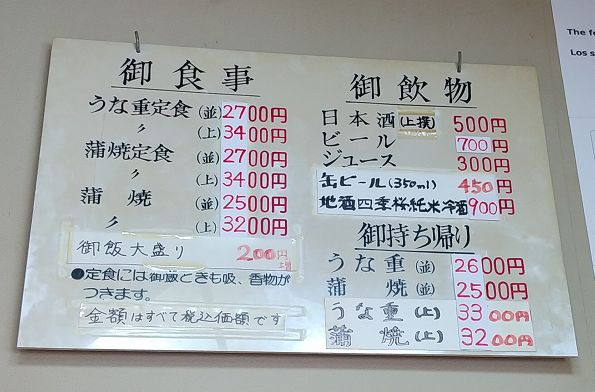 御食事
うな重定食(並)2700円
〃(上)3400円
蒲焼定食(並)2700円
〃(上)3400円
蒲焼(並)2500円
〃(上)3200円
御飯大盛り 200円増
●定食には御飯ときも吸、香物が
つきます。
金額はすべて税込価額です
御飲物
日本酒(上撰)500円
ビール 700円
ジュース 300円
缶ビール(350ml) 450円
地酒四季桜純米冷酒900円
御持ち帰り
うな重(並)2600円
蒲焼(並)2500円
うな重(上)3300円
蒲焼(上)3200円
The fo
Los s